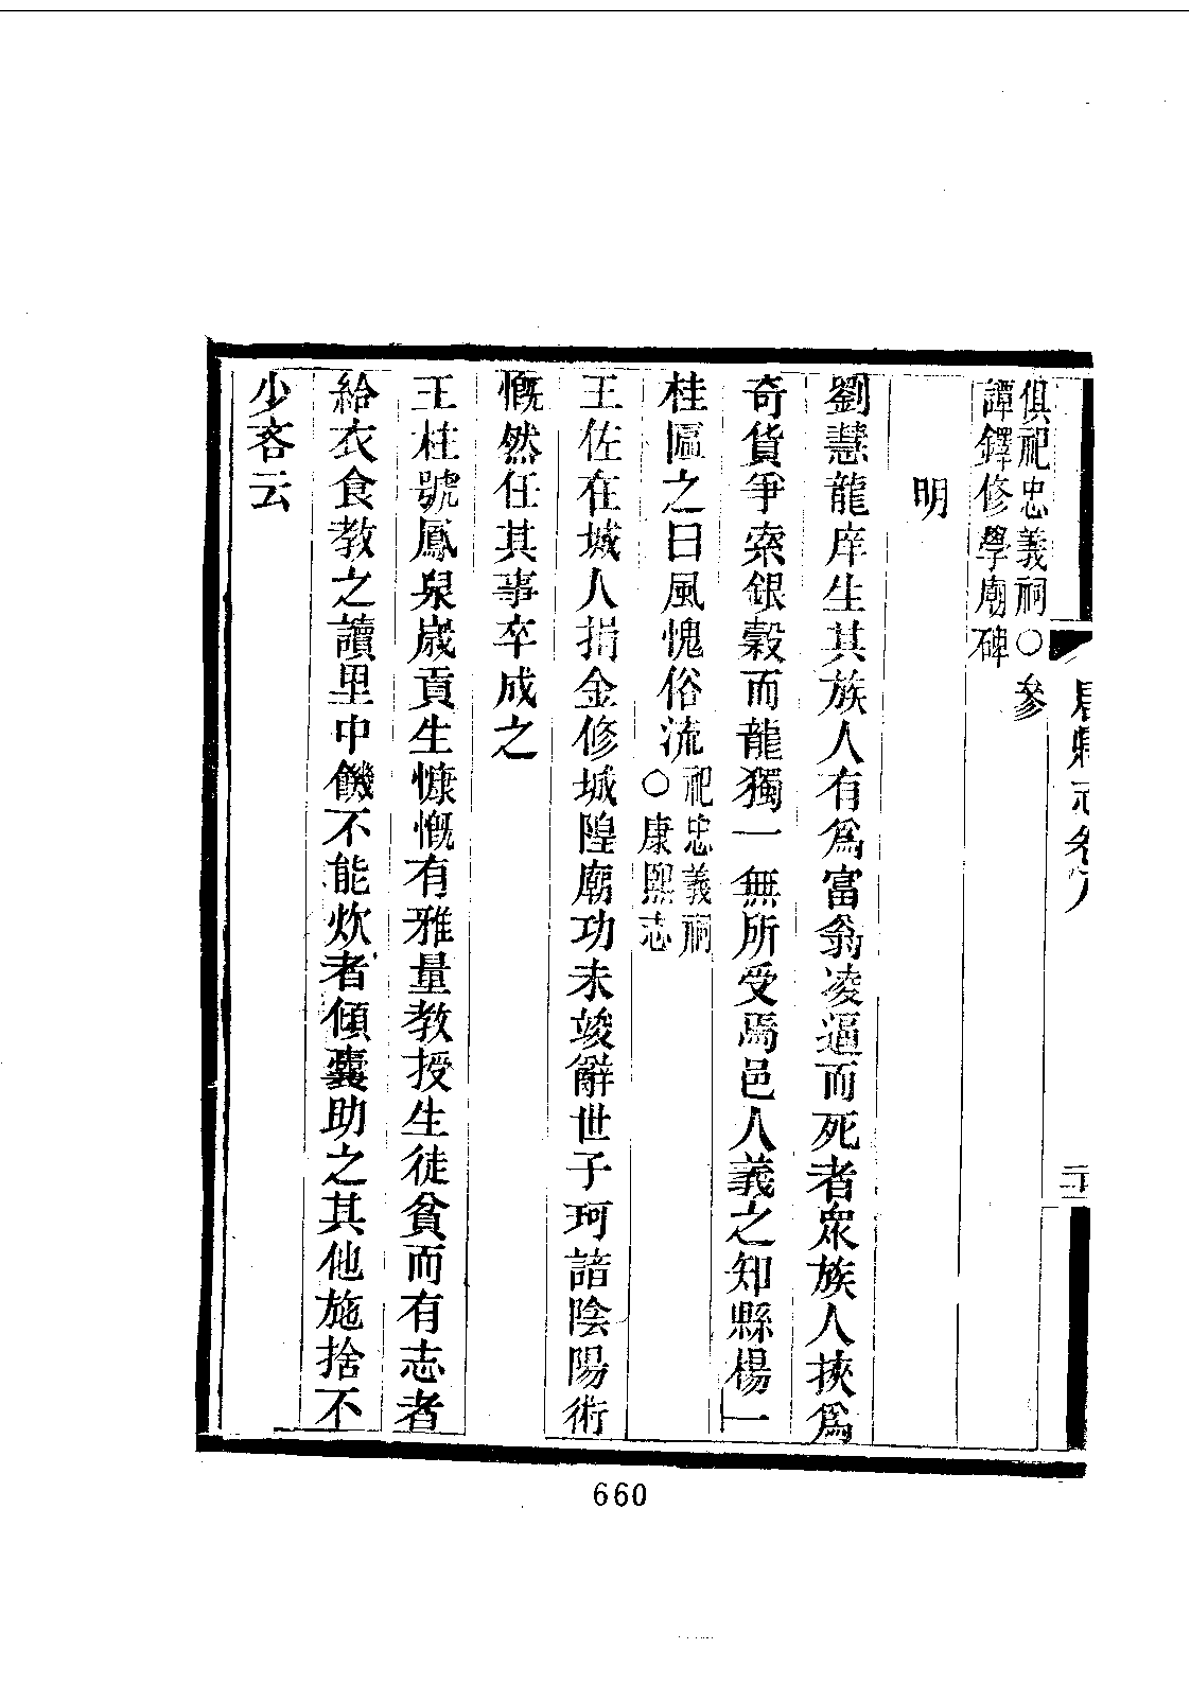 唐縣志卷八
俱祀忠義祠○參
譚鐸修學廟碑
明
劉慧龍庠生其族人有爲富翁凌逼而死者衆族人挾爲
奇貨爭索銀穀而龍獨一無所受焉邑人義之知縣楊一
桂匾之曰風愧俗流
祀忠義祠
○康熙志
王佐在城人捐金修城隍廟功未竣辭世子珂諳陰陽術
慨然任其事卒成之
王柱號鳳泉歲貢生慷慨有雅量教授生徒貧而有志者
給衣食教之讀里中饑不能炊者傾囊助之其他施捨不
少吝云
660